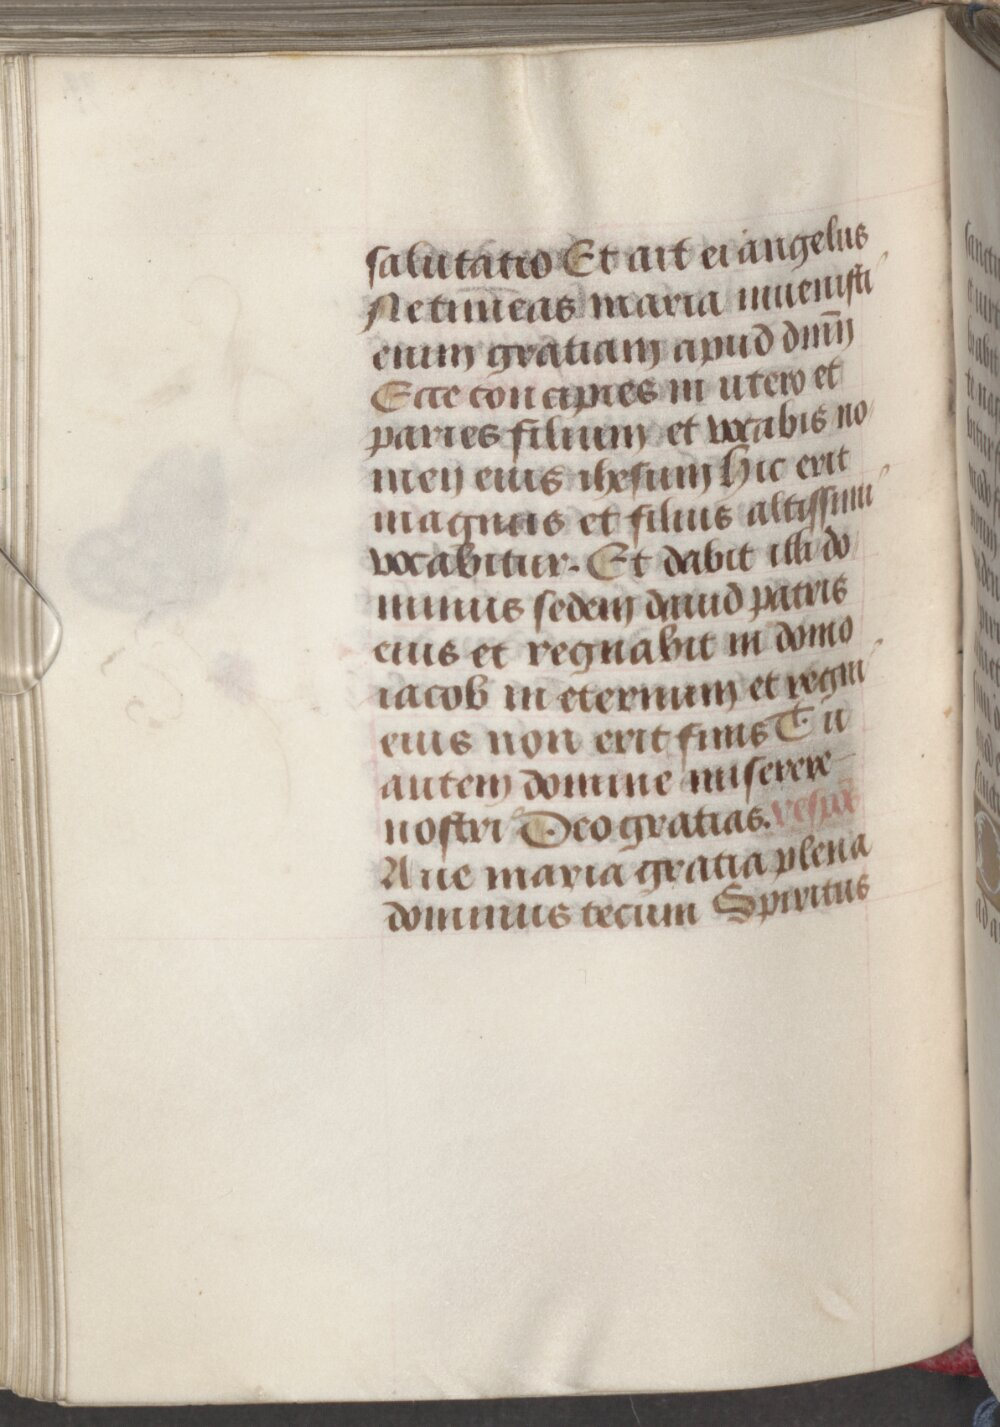 salutatio Et ait ei angelus
Ne timeas maria inuenisti
enim gratiam apud dnm̄
Ecce concipies in utero et
paries filium et vocabis no
men eius ihesum hic erit
magnus et filius altissimi
vocabitur. Et dabit illi do
minus sedem dauid patris
eius et regnabit in domo
iacob in eternum et regni
eius non erit finis Tu
autem domine miserere
nostri Deo gratias.
Aue maria gratia plena
dominus tecum Spiritus